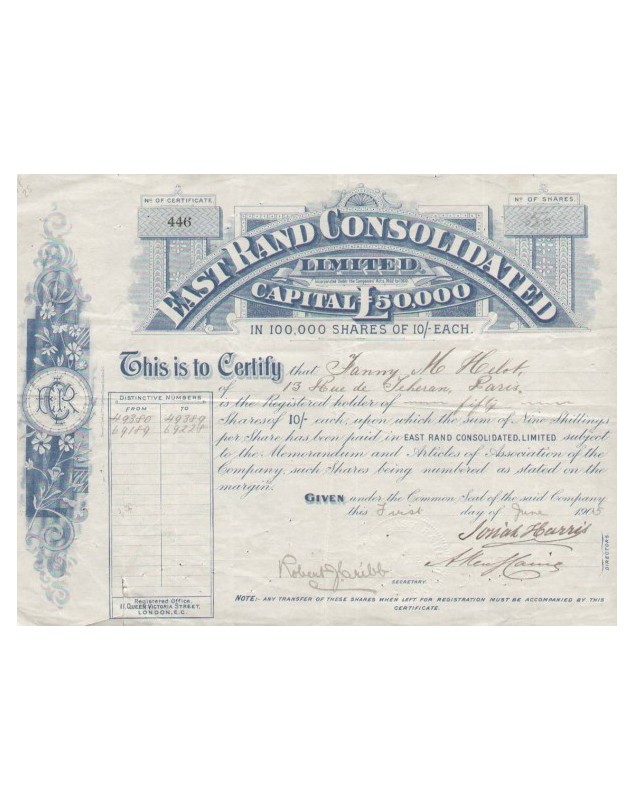 No OF CERTIFICATE.
446
No OF SHARES.
EAST RAND CONSOLIDATED
LIMITED
CAPITAL £50,000
IN 100,000 SHARES OF 10/- EACH.
This is to Certify that Fanny M Helot,
of 13 Rue de Teheran, Paris.
is the Registered holder of fifty
Shares of 10/- each, upon which the sum of Nine Shillings
per Share has been paid in EAST RAND CONSOLIDATED, LIMITED subject
to the Memorandum and Articles of Association of the
Company, such Shares being numbered as stated on the
margin.
DISTINCTIVE NUMBERS
FROM TO
49380 49389
69189 69228
GIVEN under the Common Seal of the said Company
this First day of June 1905
Josiah Harris
DIRECTORS.
Robert J Cribb
SECRETARY.
Registered Office,
11, QUEEN VICTORIA STREET,
LONDON, E.C.
NOTE:- ANY TRANSFER OF THESE SHARES WHEN LEFT FOR REGISTRATION MUST BE ACCOMPANIED BY THIS
CERTIFICATE.